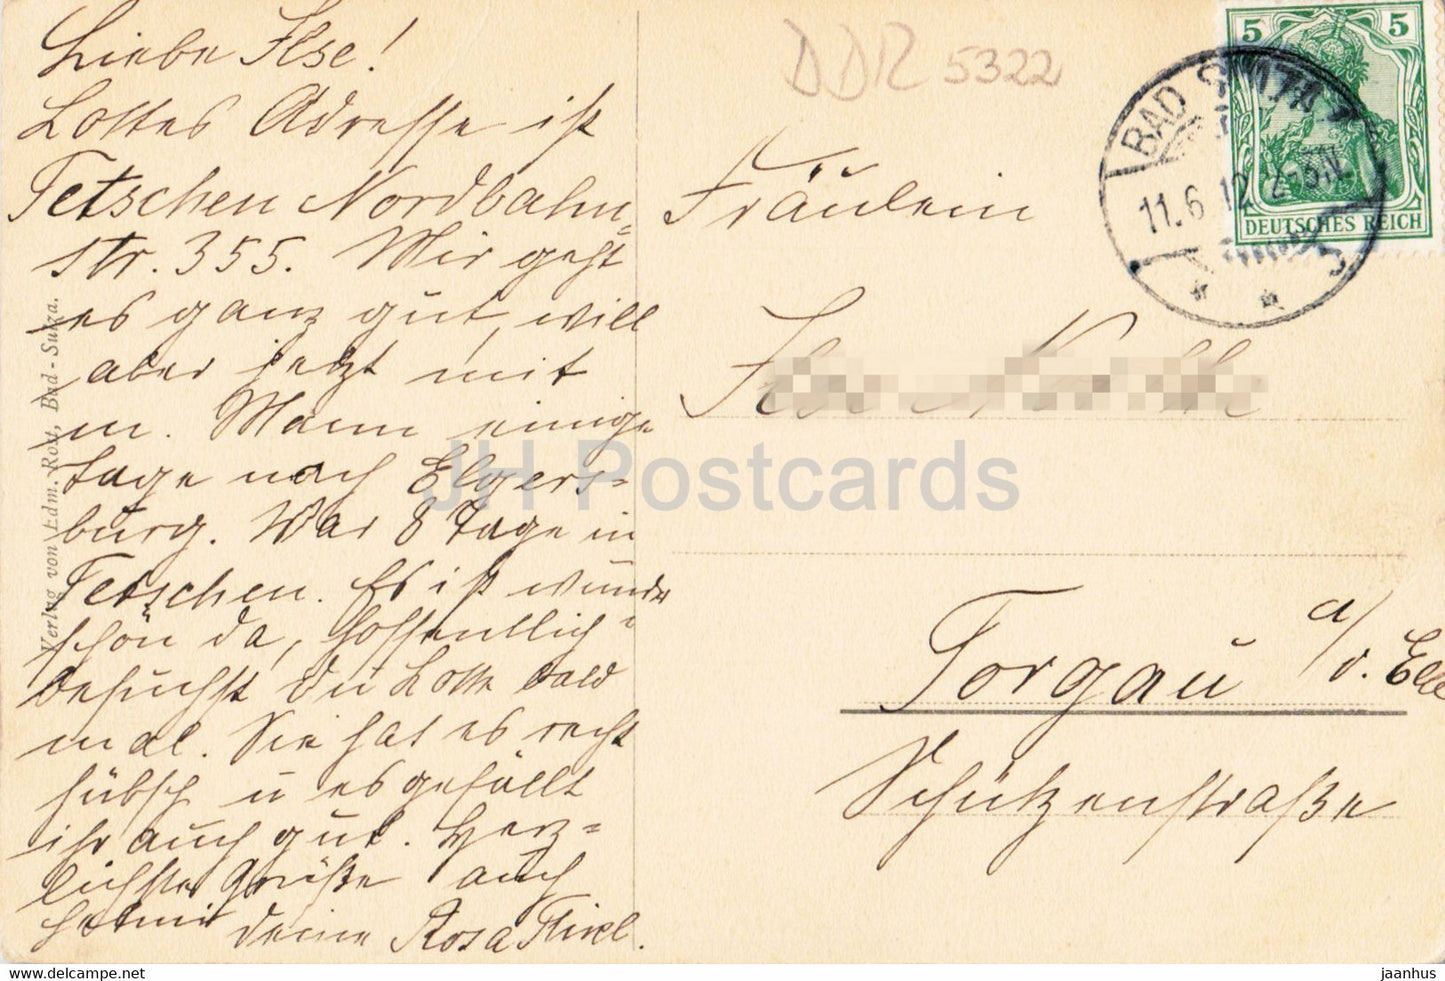 Liebe Ilse!
Lottes Adresse ist
Tetschen Nordbahn-
str. 355. Mir geht
es ganz gut, will
aber jetzt mit
m. Mann einige
Tage nach Elgers-
burg. War 8 Tage in
Tetschen. Es ist wunder-
schön da, hoffentlich
besuchst Du Lotte bald
mal. Sie hat es recht
hübsch u es gefällt
ihr auch gut. Herz-
lichste Grüße auch
deine Rosa
Verlag von Edm. Rost, Bad-Sulza.
DDR 5322
5 5
DEUTSCHES REICH
BAD SULZA
11.6.12. 2-3N.
Fräulein
Torgau a/d. Elbe
Schützenstraße
JH Postcards
https://www.delcampe.net
jaanhus